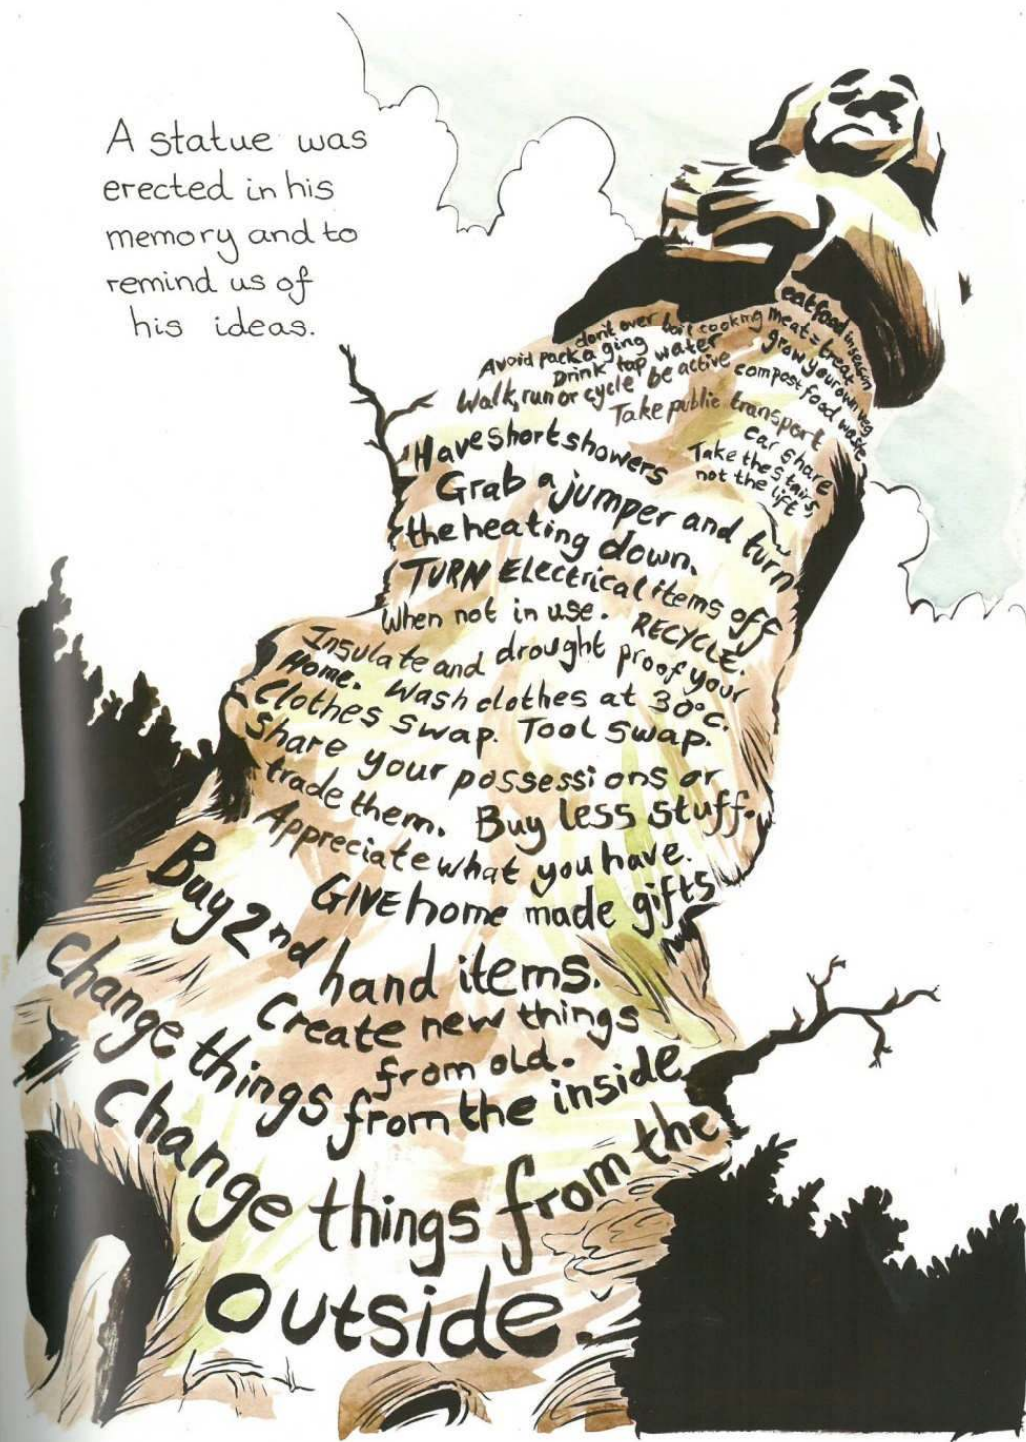 A statue was
erected in his
memory and to
remind us of
his ideas.
eat food in season
don't over boil cooking meat = treat
grow your own veg
Avoid packaging
Drink tap water
compost food waste
Walk, run or cycle be active
Take public transport
car share
Take the stairs,
not the lift
Have short showers
Grab a jumper and turn
the heating down.
TURN Electrical items off
when not in use. RECYCLE.
Insulate and drought proof your
Home. Wash clothes at 30°C.
Clothes swap. Tool swap.
Share your possessions or
trade them. Buy less stuff.
Appreciate what you have.
GIVE home made gifts
Buy 2nd hand items.
Create new things
from old.
Change things from the inside
Change things from the
Outside.